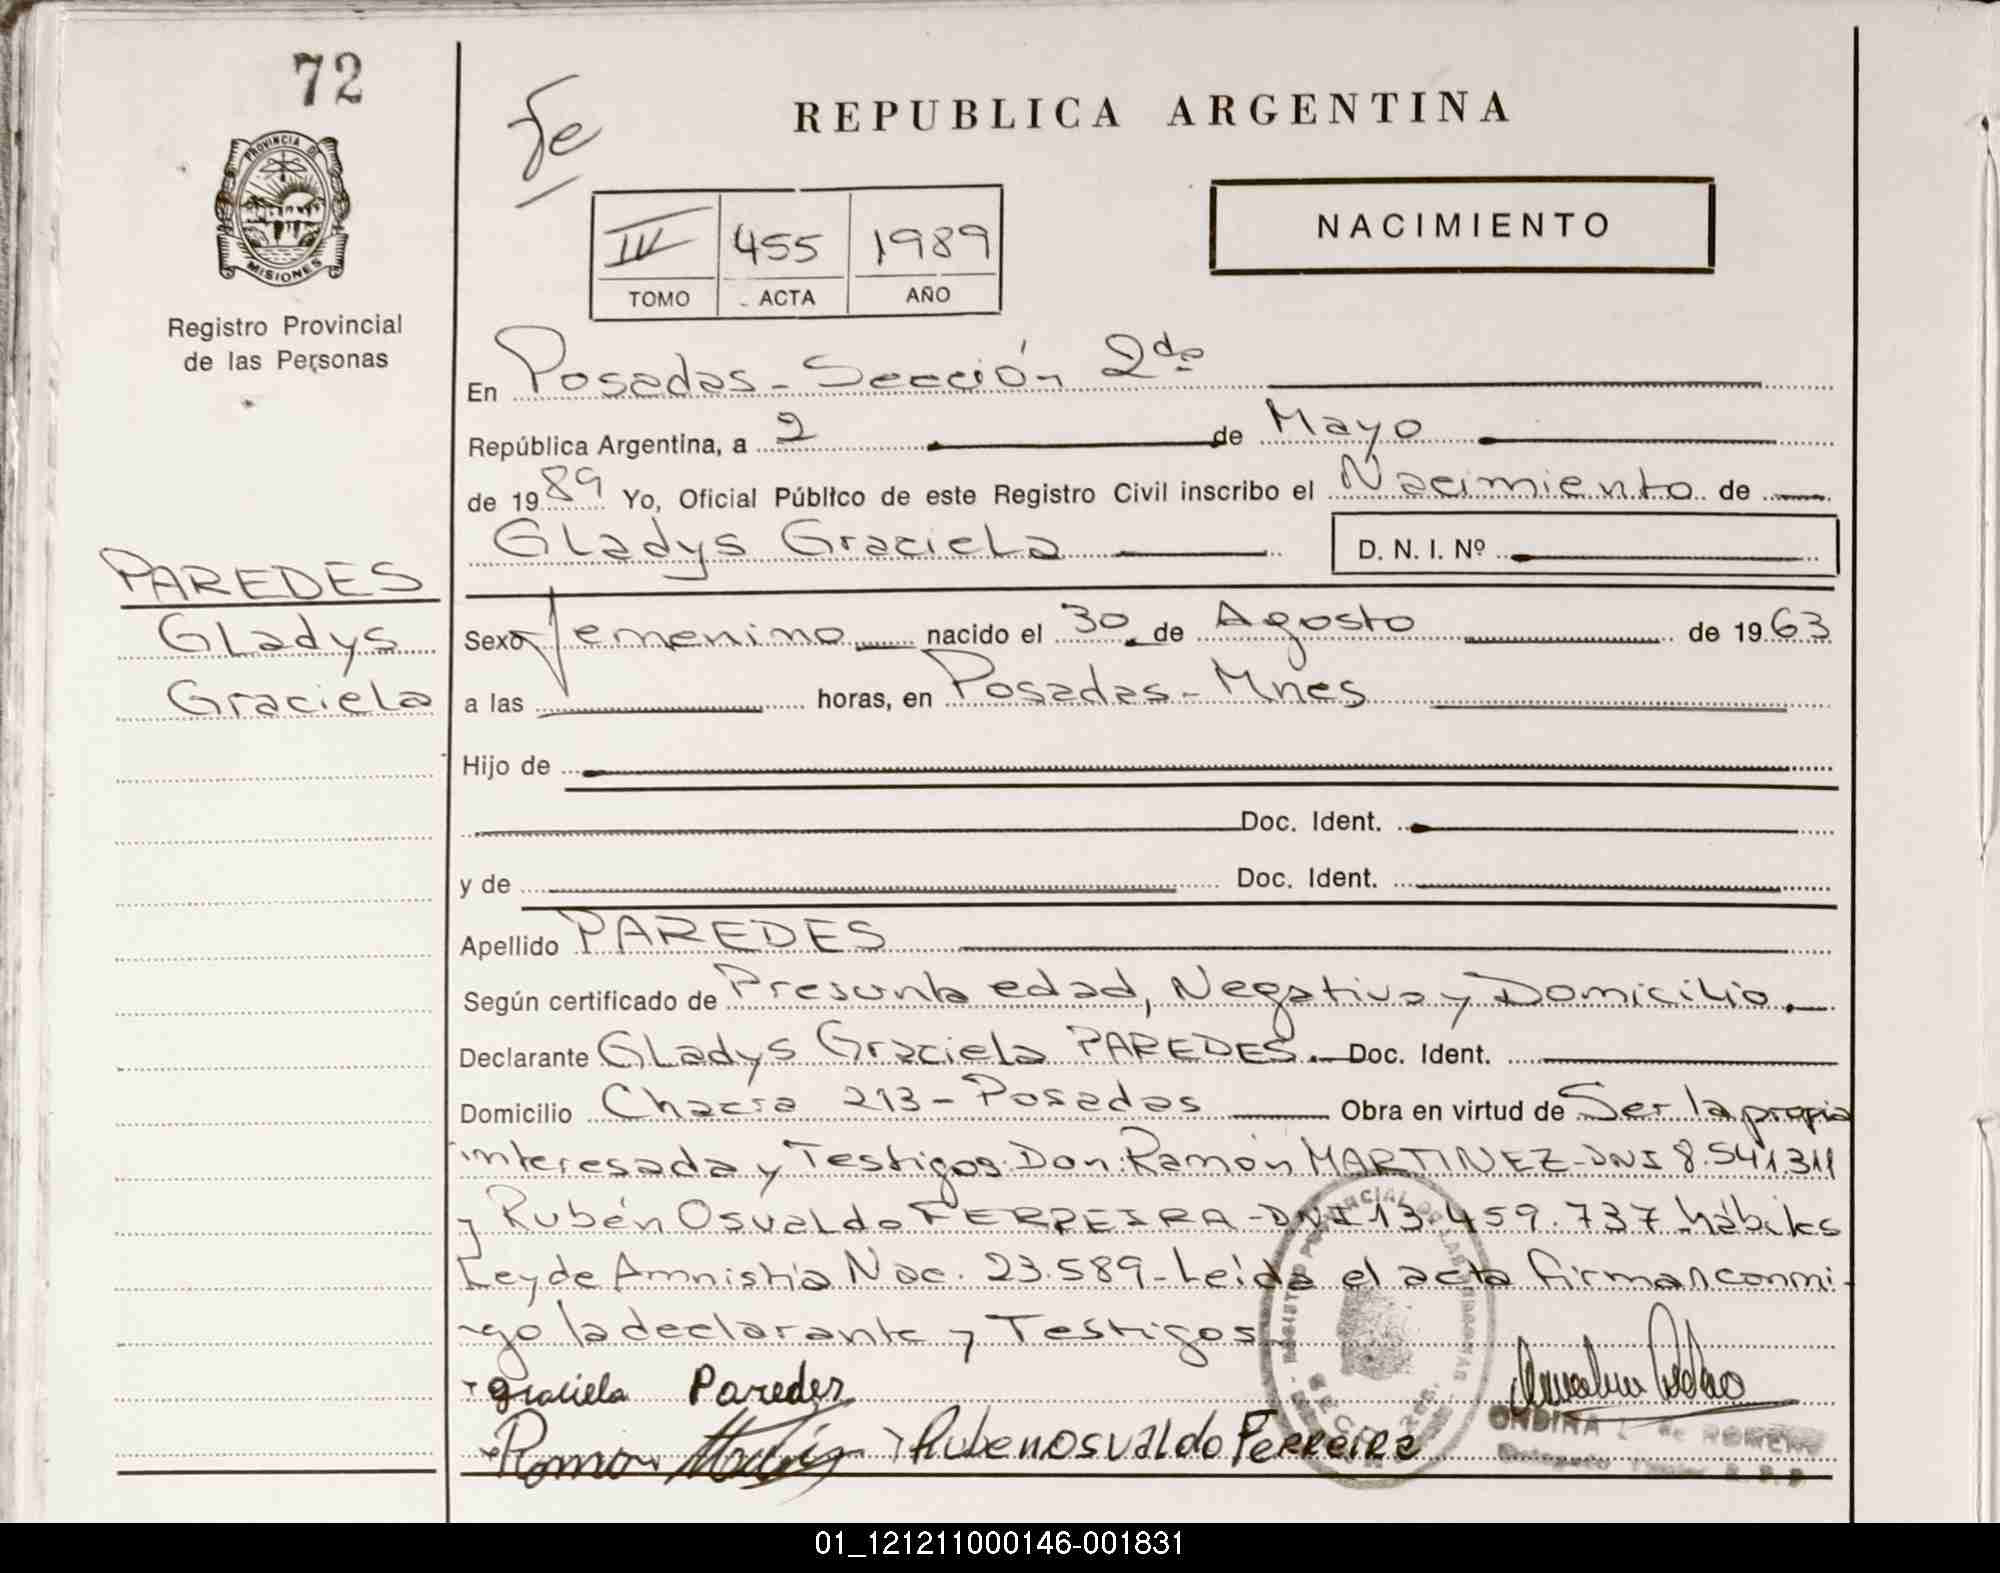 72
Fe
REPUBLICA ARGENTINA
PROVINCIA DE
MISIONES
Registro Provincial
de las Personas
IV 455 1989
TOMO ACTA AÑO
NACIMIENTO
En Posadas - Sección 2da
República Argentina, a 2 de Mayo
de 1989 Yo, Oficial Público de este Registro Civil inscribo el Nacimiento de
Gladys Graciela D. N. I. Nº
PAREDES
Gladys
Graciela
Sexo femenino nacido el 30 de Agosto de 1963
a las horas, en Posadas - Mnes
Hijo de
Doc. Ident.
y de Doc. Ident.
Apellido PAREDES
Según certificado de Presunta edad, Negativa y Domicilio.
Declarante Gladys Graciela PAREDES. Doc. Ident.
Domicilio Chacra 213 - Posadas Obra en virtud de Ser la propia
interesada y Testigos: Don Ramón MARTINEZ - DNI 8.541.311
y Rubén Osvaldo FERREIRA - DNI 13.459.737 hábiles
Ley de Amnistía Nac. 23.589 - Leída el acta firman conmi-
-go la declarante y Testigos
Graciela Paredes
Ramon Rubén Osvaldo Ferreira
ONDINA
01_121211000146-001831